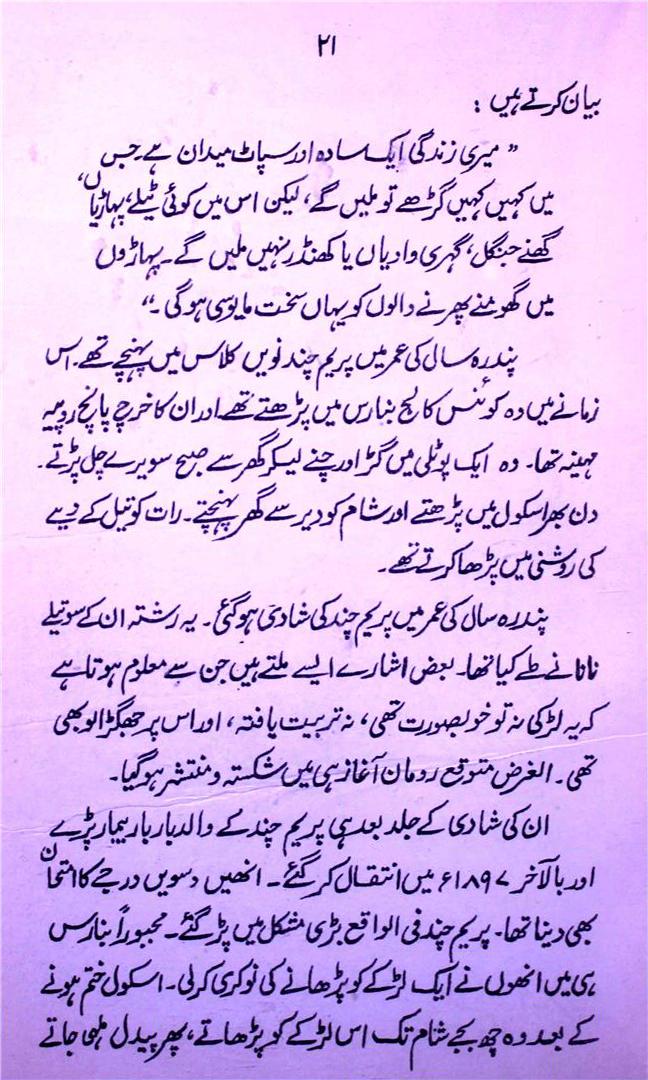 ۲۱
بیان کرتے ہیں :
” میری زندگی ایک سادہ اور سپاٹ میدان ہے۔ جس
میں کہیں کہیں گڑھے تو ملیں گے، لیکن اس میں کوئی ٹیلے، پہاڑیاں،
گھنے جنگل، گہری وادیاں یا کھنڈر نہیں ملیں گے۔ پہاڑوں
میں گھومنے پھرنے والوں کو یہاں سخت مایوسی ہوگی ۔“
پندرہ سال کی عمر میں پریم چند نویں کلاس میں پہنچے تھے۔ اس
زمانے میں وہ کوئنس کالج بنارس میں پڑھتے تھے اور ان کا خرچ پانچ روپیہ
مہینہ تھا۔ وہ ایک پوٹلی میں گڑ اور چنے لیکر گھر سے صبح سویرے چل پڑتے۔
دن بھر اسکول میں پڑھتے اور شام کو دیر سے گھر پہنچتے۔ رات کو تیل کے دیے
کی روشنی میں پڑھا کرتے تھے۔
پندرہ سال کی عمر میں پریم چند کی شادی ہوگئی۔ یہ رشتہ ان کے سوتیلے
نانا نے طے کیا تھا۔ بعض اشارے ایسے ملتے ہیں جن سے معلوم ہوتا ہے
کہ یہ لڑکی نہ تو خوبصورت تھی، نہ تربیت یافتہ، اور اس پر جھگڑالو بھی
تھی۔ الغرض متوقع رومان آغاز ہی میں شکستہ و منتشر ہوگیا۔
ان کی شادی کے جلد بعد ہی پریم چند کے والد بار بار بیمار پڑے
اور بالآخر ۱۸۹۷ء میں انتقال کر گئے۔ انھیں دسویں درجے کا امتحان
بھی دینا تھا۔ پریم چند فی الواقع بڑی مشکل میں پڑ گئے۔ مجبوراً بنارس
ہی میں انھوں نے ایک لڑکے کو پڑھانے کی نوکری کرلی۔ اسکول ختم ہونے
کے بعد وہ چھ بجے شام تک اس لڑکے کو پڑھاتے، پھر پیدل لمہی جاتے